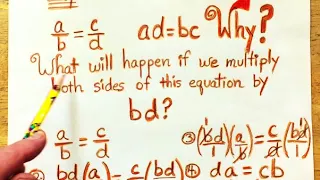 a/b = c/d ad=bc Why?
What will happen if we multiply
both sides of this equation by
bd?
a/b = c/d
② bd(a) = c(bd)
③ (bd/1)(a/b) = c/d(bd/1)
④ da = cb